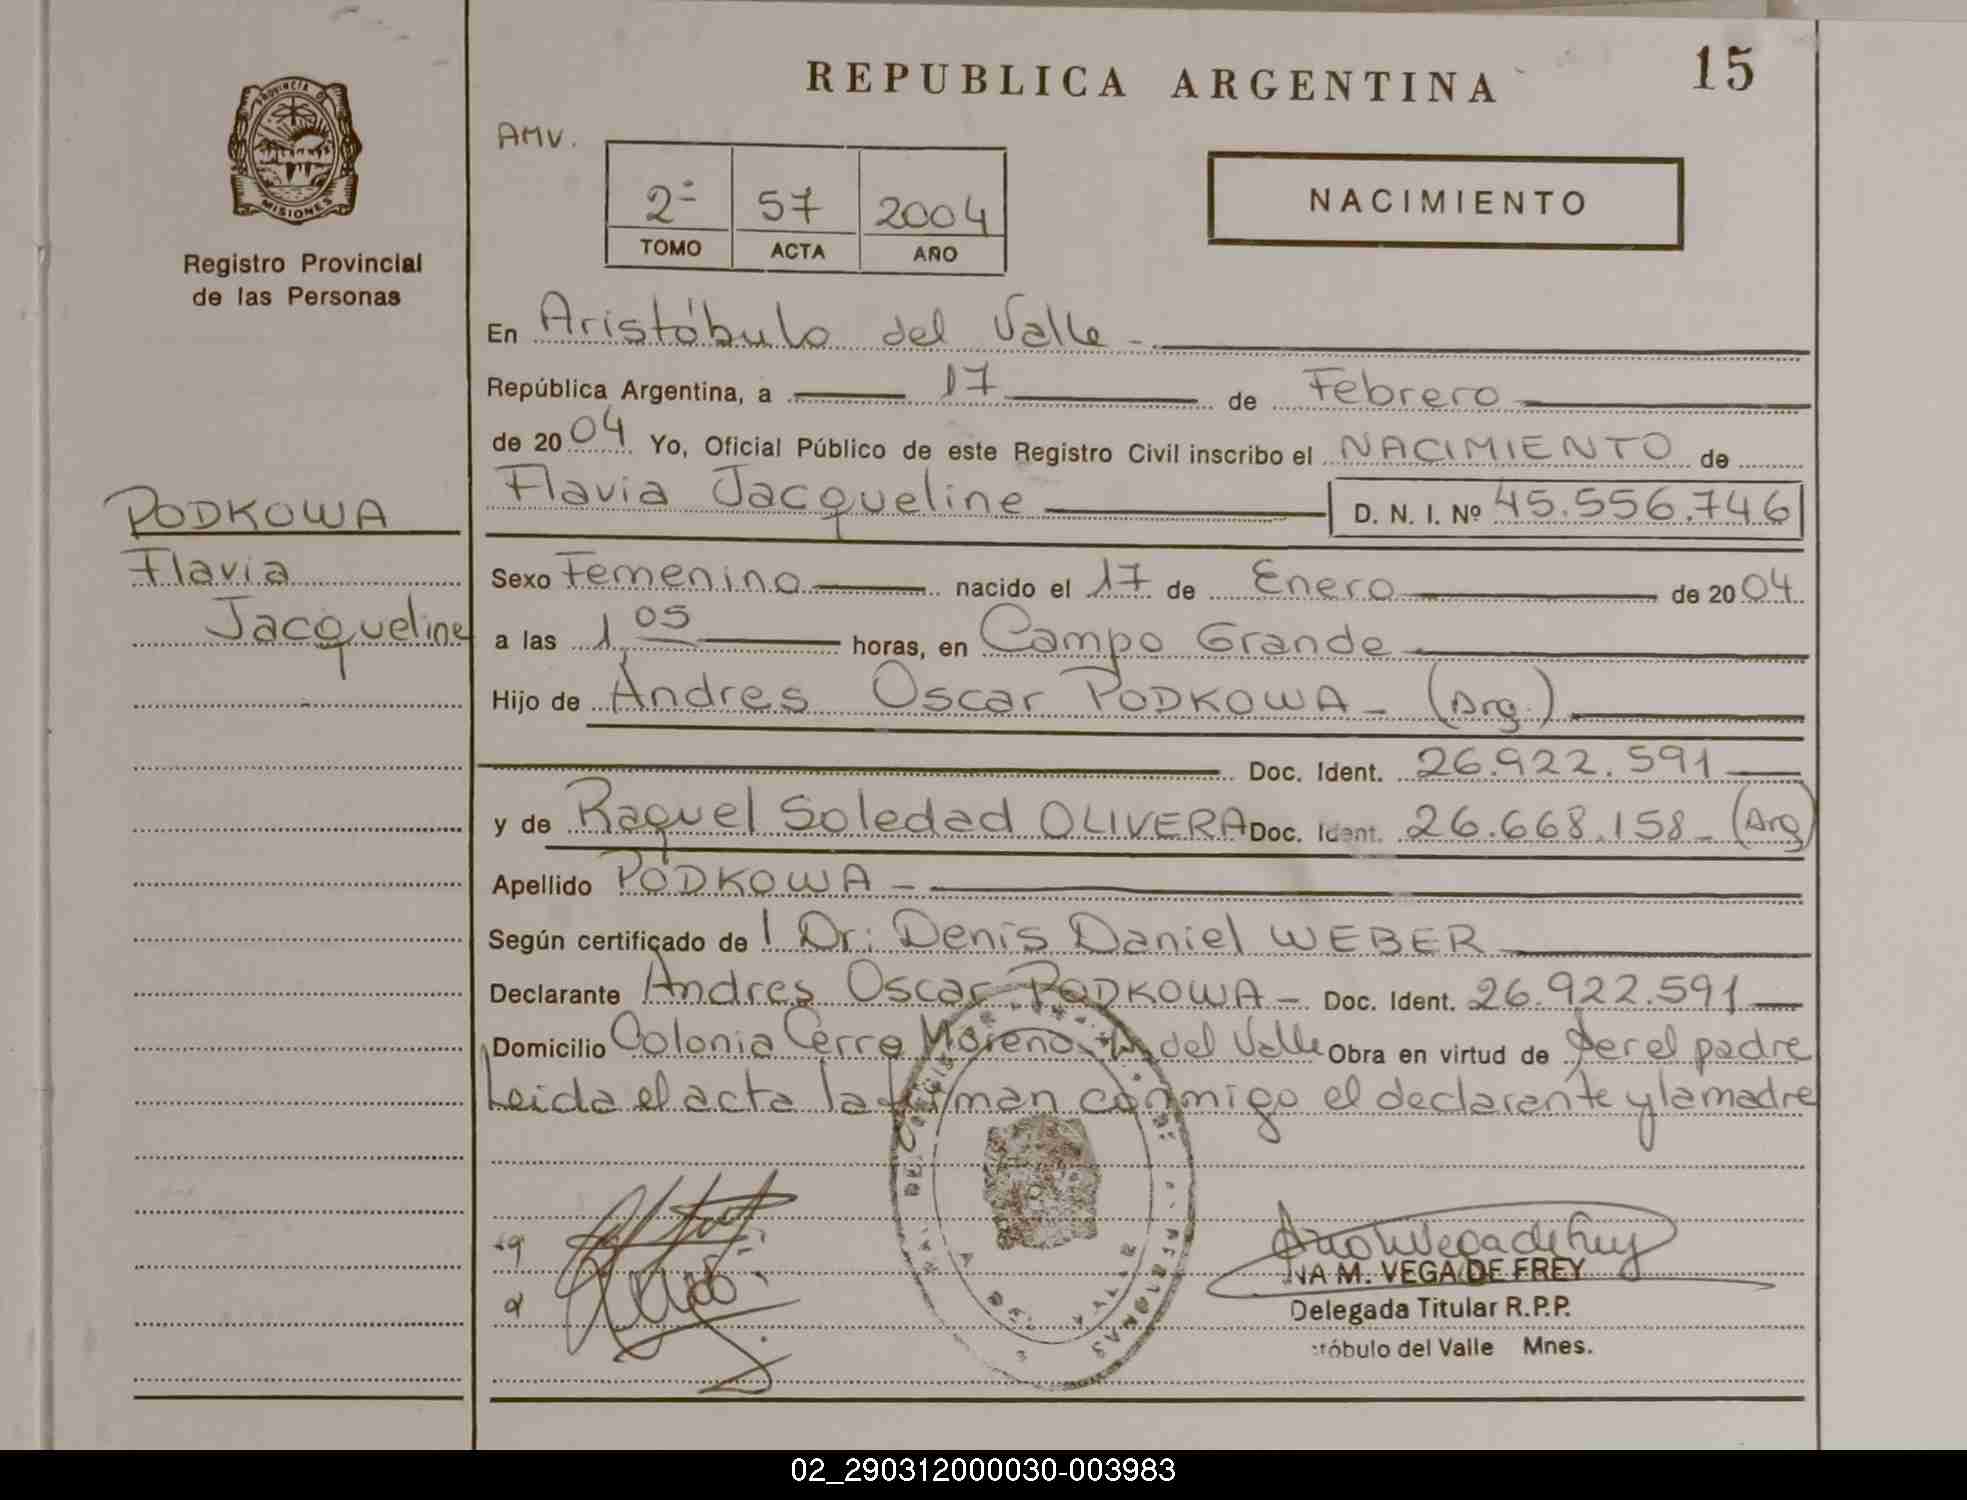 REPUBLICA ARGENTINA
15
PROVINCIA DE
MISIONES
Registro Provincial
de las Personas
AMV.
2º 57 2004
TOMO ACTA AÑO
NACIMIENTO
En Aristóbulo del Valle -
República Argentina, a 17 de Febrero
de 2004 Yo, Oficial Público de este Registro Civil inscribo el NACIMIENTO de
Flavia Jacqueline D. N. I. Nº 45.556.746
PODKOWA
Flavia
Jacqueline
Sexo Femenino nacido el 17 de Enero de 2004
a las 1,05 horas, en Campo Grande
Hijo de Andres Oscar PODKOWA - (Arg.)
Doc. Ident. 26.922.591
y de Raquel Soledad OLIVERA Doc. Ident. 26.668.158 - (Arg)
Apellido PODKOWA -
Según certificado de l Dr. Denis Daniel WEBER
Declarante Andres Oscar PODKOWA - Doc. Ident. 26.922.591
Domicilio Colonia Cerro Moreno A. del Valle Obra en virtud de ser el padre
Leida el acta la firman conmigo el declarante y la madre
NA M. VEGA DE FREY
Delegada Titular R.P.P.
tóbulo del Valle Mnes.
02_290312000030-003983